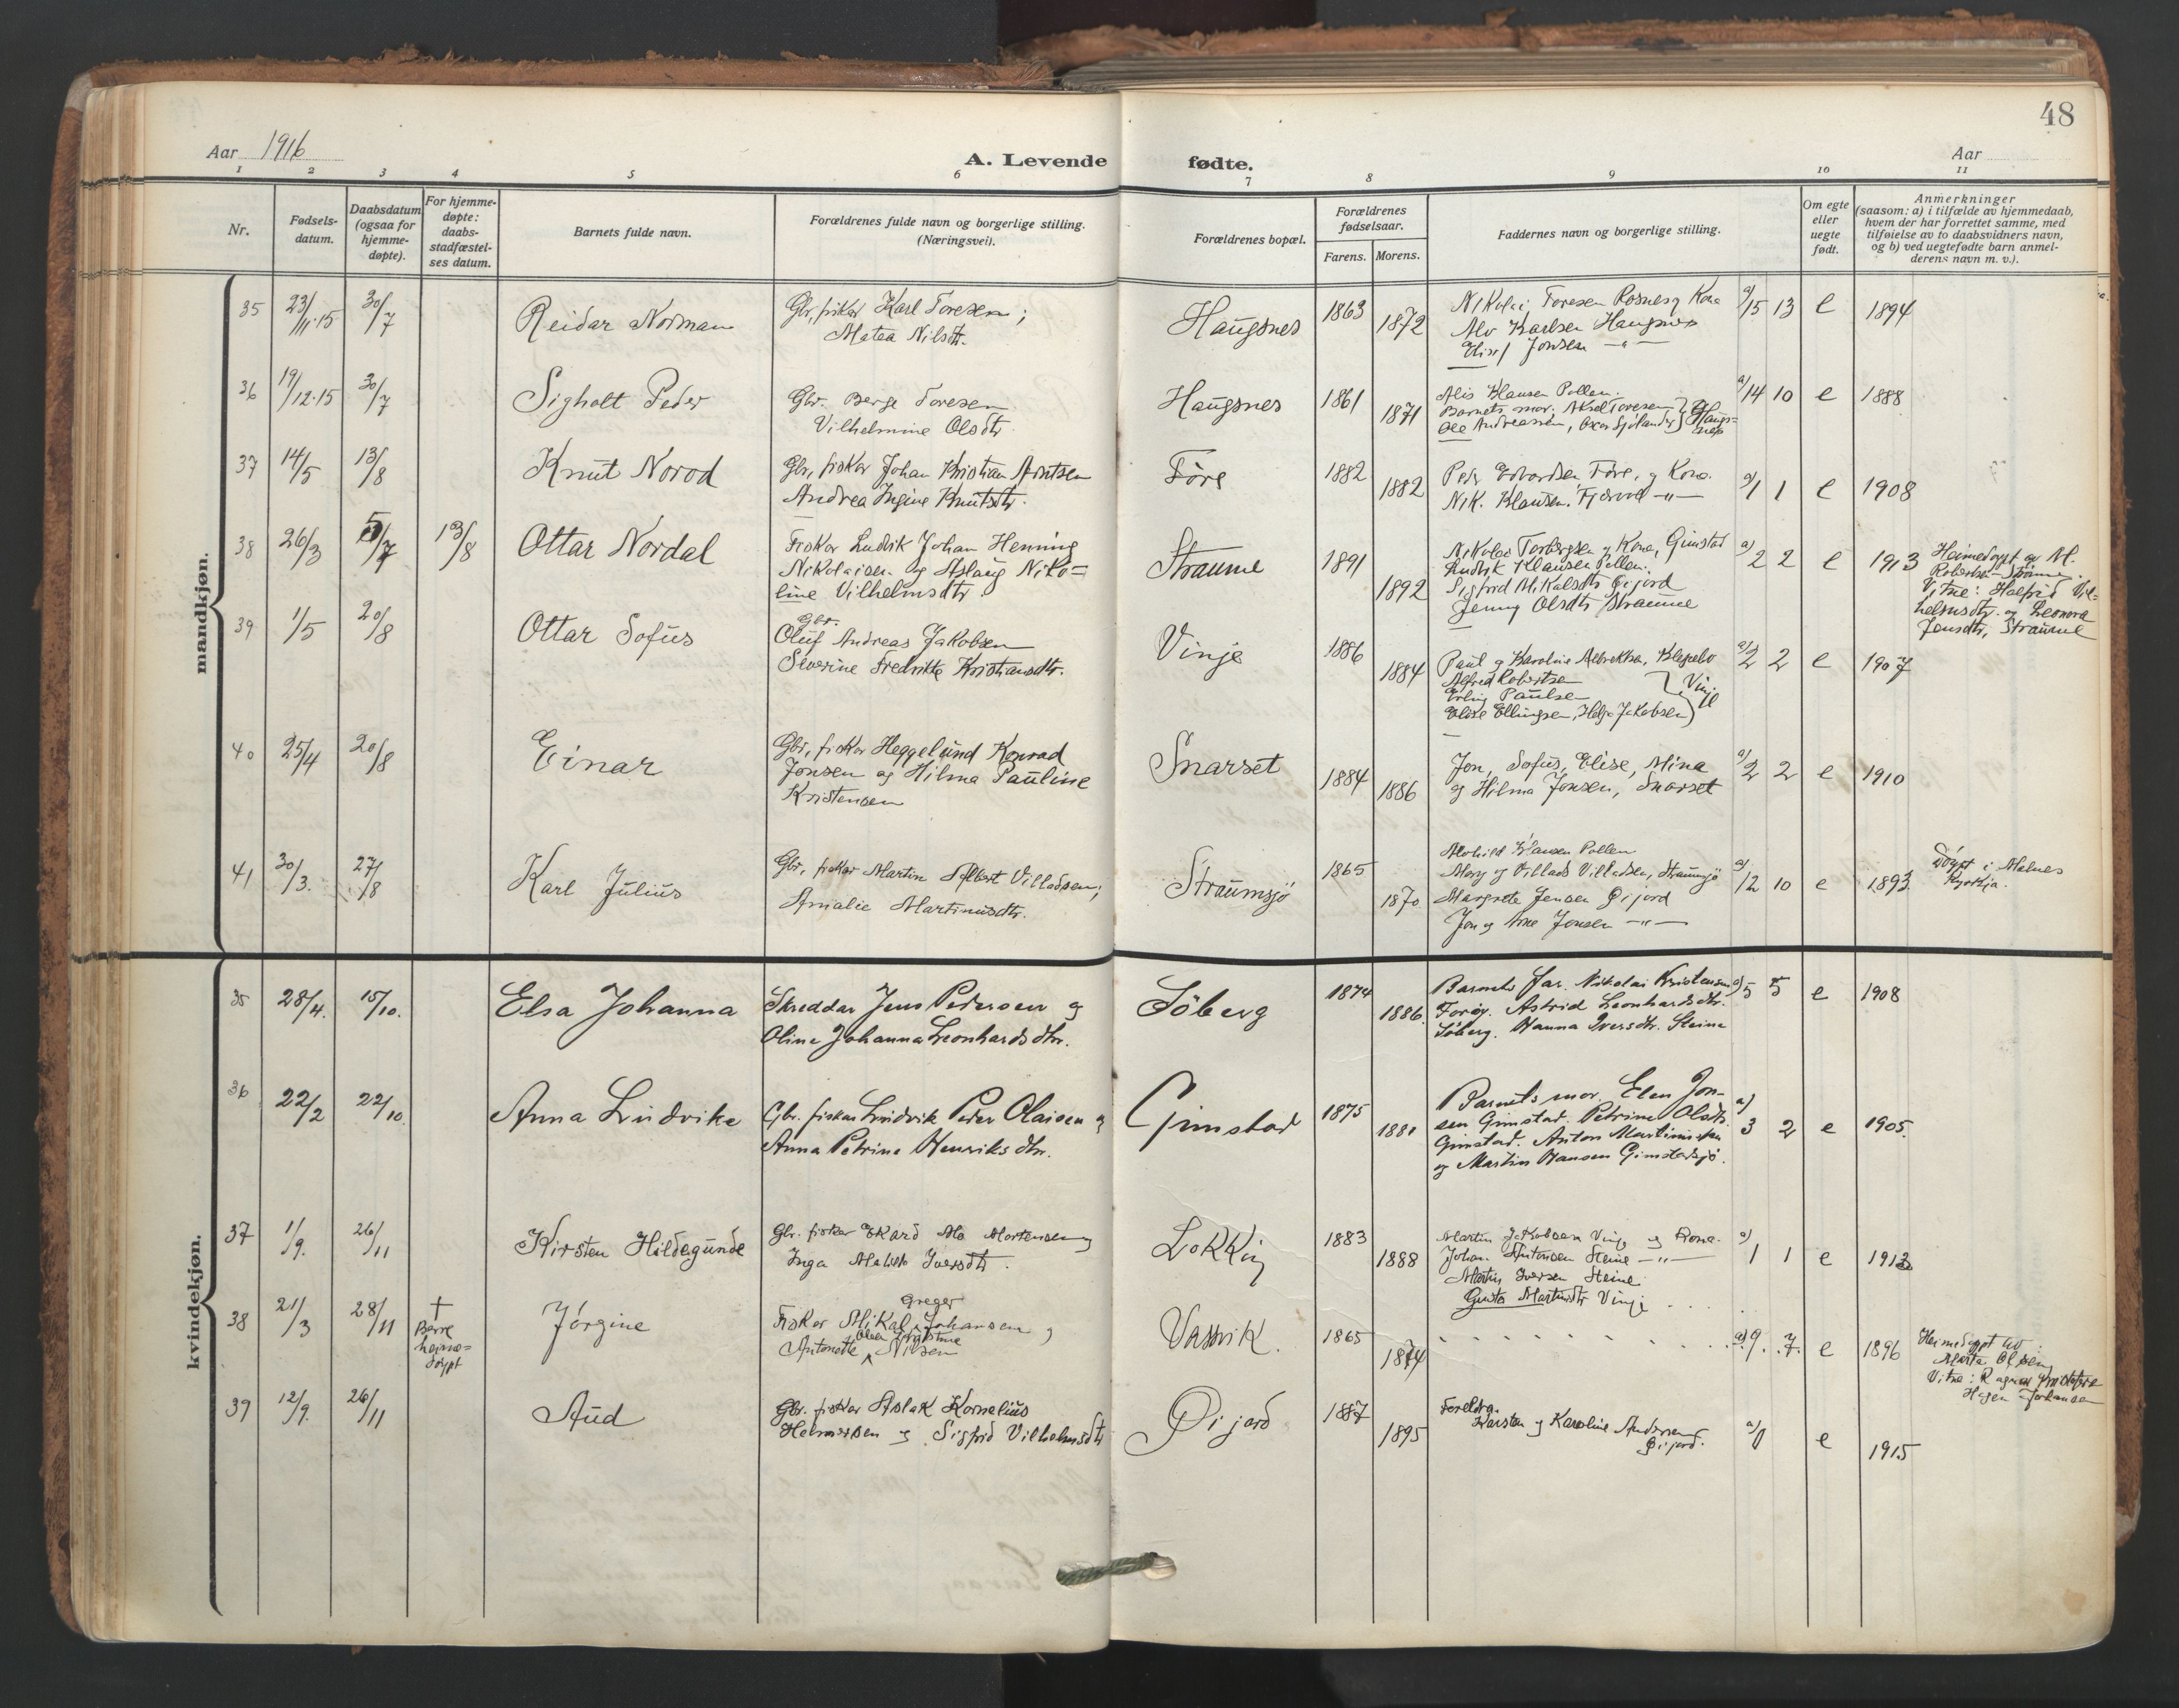 48
Aar 1916
A. Levende fødte.
Aar
1 2 3 4 5 6 7 8 9 10 11
Nr.
Fødsels-
datum.
Daabsdatum
(ogsaa for
hjemme-
døpte).
For hjemme-
døpte:
daabs-
stadfæstel-
ses datum.
Barnets fulde navn.
Forældrenes fulde navn og borgerlige stilling.
(Næringsvei).
Forældrenes bopæl.
Forældrenes
fødselsaar.
Farens. Morens.
Faddernes navn og borgerlige stilling.
Om egte
eller
uegte
født.
Anmerkninger
(saasom: a) i tilfælde av hjemmedaab,
hvem der har forrettet samme, med
tilføielse av to daabsvidners navn,
og b) ved uegtefødte barn anmel-
derens navn m. v.).
mandkjøn.
35 23/11.15 30/7 Reidar Norman
Gbr, fisker Karl Toresen;
Matea Nilsdtr.
Haugsnes 1863 1872
Nikolai Toresen Rosnes og Kona
Alv Karlsen Haugsnes
Jonsen —"—
a) 15 13 e 1894
36 19/12.15 30/7 Sigholt Peder
Gbr. Berge Toresen
Vilhelmine Olsdtr
Haugsnes 1861 1871
Alis Klausen Pollen.
Barnets mor; Aksel Toresen
Ole Andreassen, Oscar Sjölander } Haugs-
nes
a) 14 10 e 1888
37 14/5 13/8 Knut Norod
Gbr, fisker Johan Kristian Arntsen
Andrea Ingine Knutsdtr.
Före 1882 1882
Peder Edvardsen Före, og Kona.
Nik. Klausen, —"—
a) 1 1 e 1908
38 26/3 5/7 13/8 Ottar Nordal
Fisker Ludvik Johan Henning
Nikolaisen og Aslaug Niko=
line Vilhelmsdtr
Straume 1891 1892
Nikolai Torbergsen og Kona, Gimstad
Ludvik Klausen Pollen.
Sigfrid Mikalsdtr Öijord
Jenny Olsdtr Straume
a) 2 2 e 1913
Heimedöypt av M.
Robertsen Straume.
Vitne: Halfrid Vil=
helmsdtr. og Leonora
Jensdtr, Straume
39 1/5 20/8 Ottar Sofus
Gbr.
Oluf Andreas Jakobsen
Severine Fredrikke Kristiansdtr.
Vinje 1886 1884
Paul og Karoline Albrektsen, Klepebo
Alfred Robertsen
Erling Paulsen
Elise Ellingsen, Helga Jakobsen } Vinje
a) 2 2 e 1907
40 25/4 20/8 Einar
Gbr, fisker Heggelund Konrad
Jonsen og Hilma Pauline
Kristensen
Snarset 1884 1886
Jon, Sofus, Elise, Mina
og Hilma Jonsen, Snarset
a) 2 2 e 1910
41 30/3. 27/8 Karl Julius
Gbr, fisker Martin Albert Villadsen;
Amalie Martinusdtr.
Straumsjö 1865 1870
Klausen Pollen
Mary og Villads Villadsen, Straumsjö
Margrete Jensen Öijord
Jon og Arne Jonsen —"—
a) 12 10 e 1893.
Döypt i Malnes
Kyrkja.
kvindekjøn.
35 28/4. 15/10. Elsa Johanna
Skreddar Jens Pedersen og
Oline Johanna Leonhardsdtr.
Söberg 1874 1886.
Barnets far. Nikolai Kristensen
Foröy. Astrid Leonhardsdtr.
Söberg. Hanna Iversdtr. Steine
a) 5 5 e 1908
36 22/2 22/10 Anna Ludvike
Gbr. fisker Ludvik Peder Olaisen og
Anna Petrine Henriksdtr.
Gimstad 1875 1881
Barnets mor. Elen Jon-
sen Gimstad. Petrine Olsdtr.
Gimstad. Anton Martinussen
og Martin Hansen Gimstadsjö.
a) 3 2 e 1905.
37 1/9. 26/11 Kirsten Hildegunde
Gbr. fisker Ekard Mo Mortensen og
Inga Iversdtr.
Lokkin 1883 1888
Martin Jakobsen Vinje og Kona.
Johan Antonsen Steine —"—
Martin Iversen Steine
Gusta Martinsdtr Vinje
a) 1 1 e 1913
38 21/3 28/11 † Berre
heime=
döypt
Jörgine
Greger
Fisker Mikal Johansen og
Antonette Nilsen
Vassvik. 1865 1874
a) 9. 7. e 1896
Heimedöypt av:
Marta Olsen,
Vitne: Ragna Kristofa
Hagen Johansen
39 12/9. 26/11 Aud
Gbr. fisker Aslak Kornelius
Helmersen og Sigfrid Vilhelmsdtr
Öijord 1887 1895
Foreldra.
Karsten og Karoline Andersen
Öijord.
a) 0 e 1915